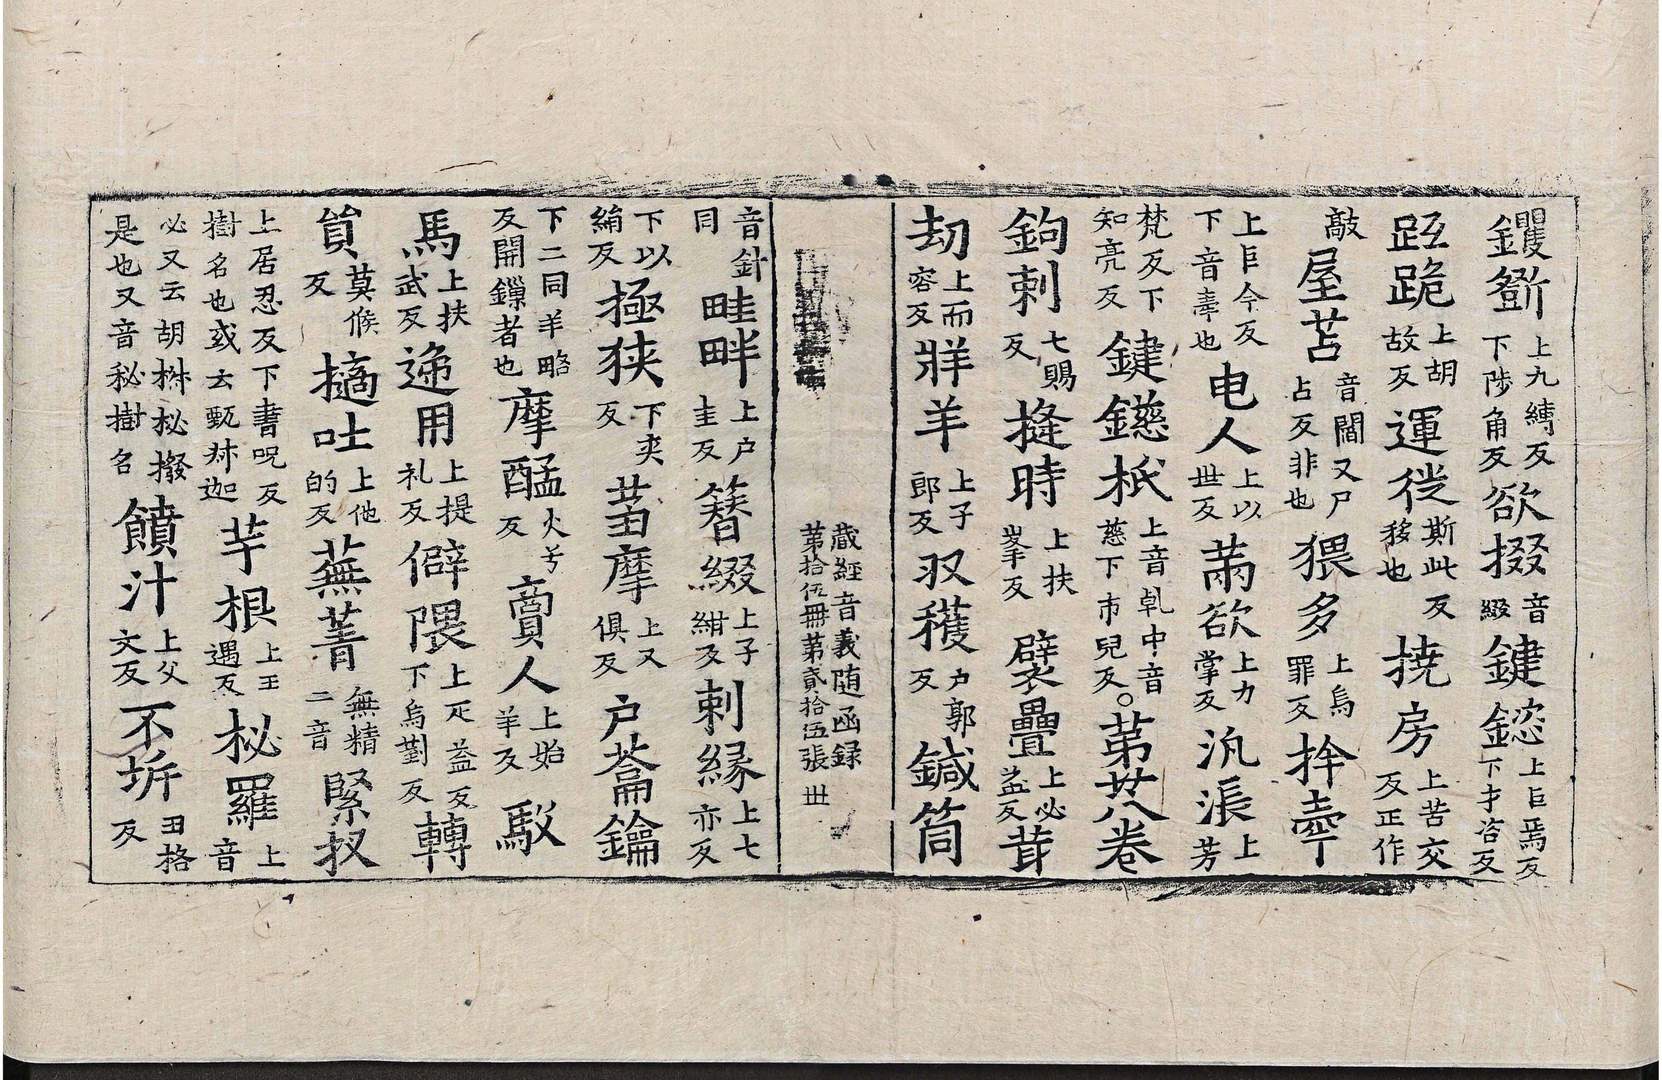 钁斵上九縛反下陟角反欲掇音綴鍵鎡上巨焉反下才咨反
跙跪上胡故反運徙斯此反移也撓房上苦交反正作
敲屋苫音閻又尸占反非也猥多上烏罪反捽牽
上巨今反下音牽也电人上以世反萳欲上力掌反汎漲上芳
梵反下知亮反鍵鎡柢上音乹中音慈下市兒反。苐廿八卷
鉤刺七賜反摓時上扶峯反襞疊上必益反茸
劫上而容反牂羊上子郎反収穫户郭反鍼筒
藏經音義随函録
第拾伍冊第貳拾伍張 丗
音針同畦畔上户圭反簪綴上子紺反刺緣上七亦反
下以綃反極狭下夾反䒷摩上又俱反户蘥鑰
下二同羊略反開鏁者也摩醘火兮反賷人上始羊反馺
馬上扶武反递用上提礼反僻隈上疋益反下烏㔁反轉
貿莫候反擿吐上他的反蕪菁無精二音緊扠
上居忍反下書呪反樹名也或云甄叔迦芋根上王遇反柲羅上音
必又云胡栟柲撥是也又音秘樹名饙汁上父文反不㙤丑格反